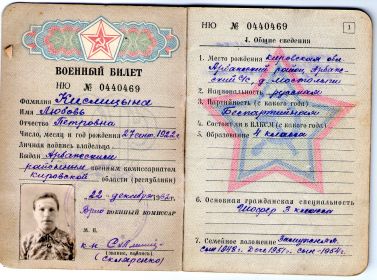 ВОЕННЫЙ БИЛЕТ
НЮ № 0440469
Фамилия Кислицына
Имя Любовь
Отчество Петровна
Число, месяц и год рождения 1922 г.
Личная подпись владельца
Выдан Арбажским
районным военным комиссариатом
Кировской области (республики)
22 декабря
Врио военный комиссар
М. П.
(звание, подпись)
(Скляренко)
НЮ № 0440469
1
4. Общие сведения
1. Место рождения Кировская обл.
Арбажский район, Арбаж-
ский с/с, д.
2. Национальность русская
3. Партийность (с какого года)
Беспартийная
4. Состоял в ВЛКСМ (с какого года)
5. Образование 4 класса
6. Основная гражданская специальность
Шофер 3 класса
7. Семейное положение Замужняя
сын 1948 г. дочь 1951 г. сын - 1954 г.